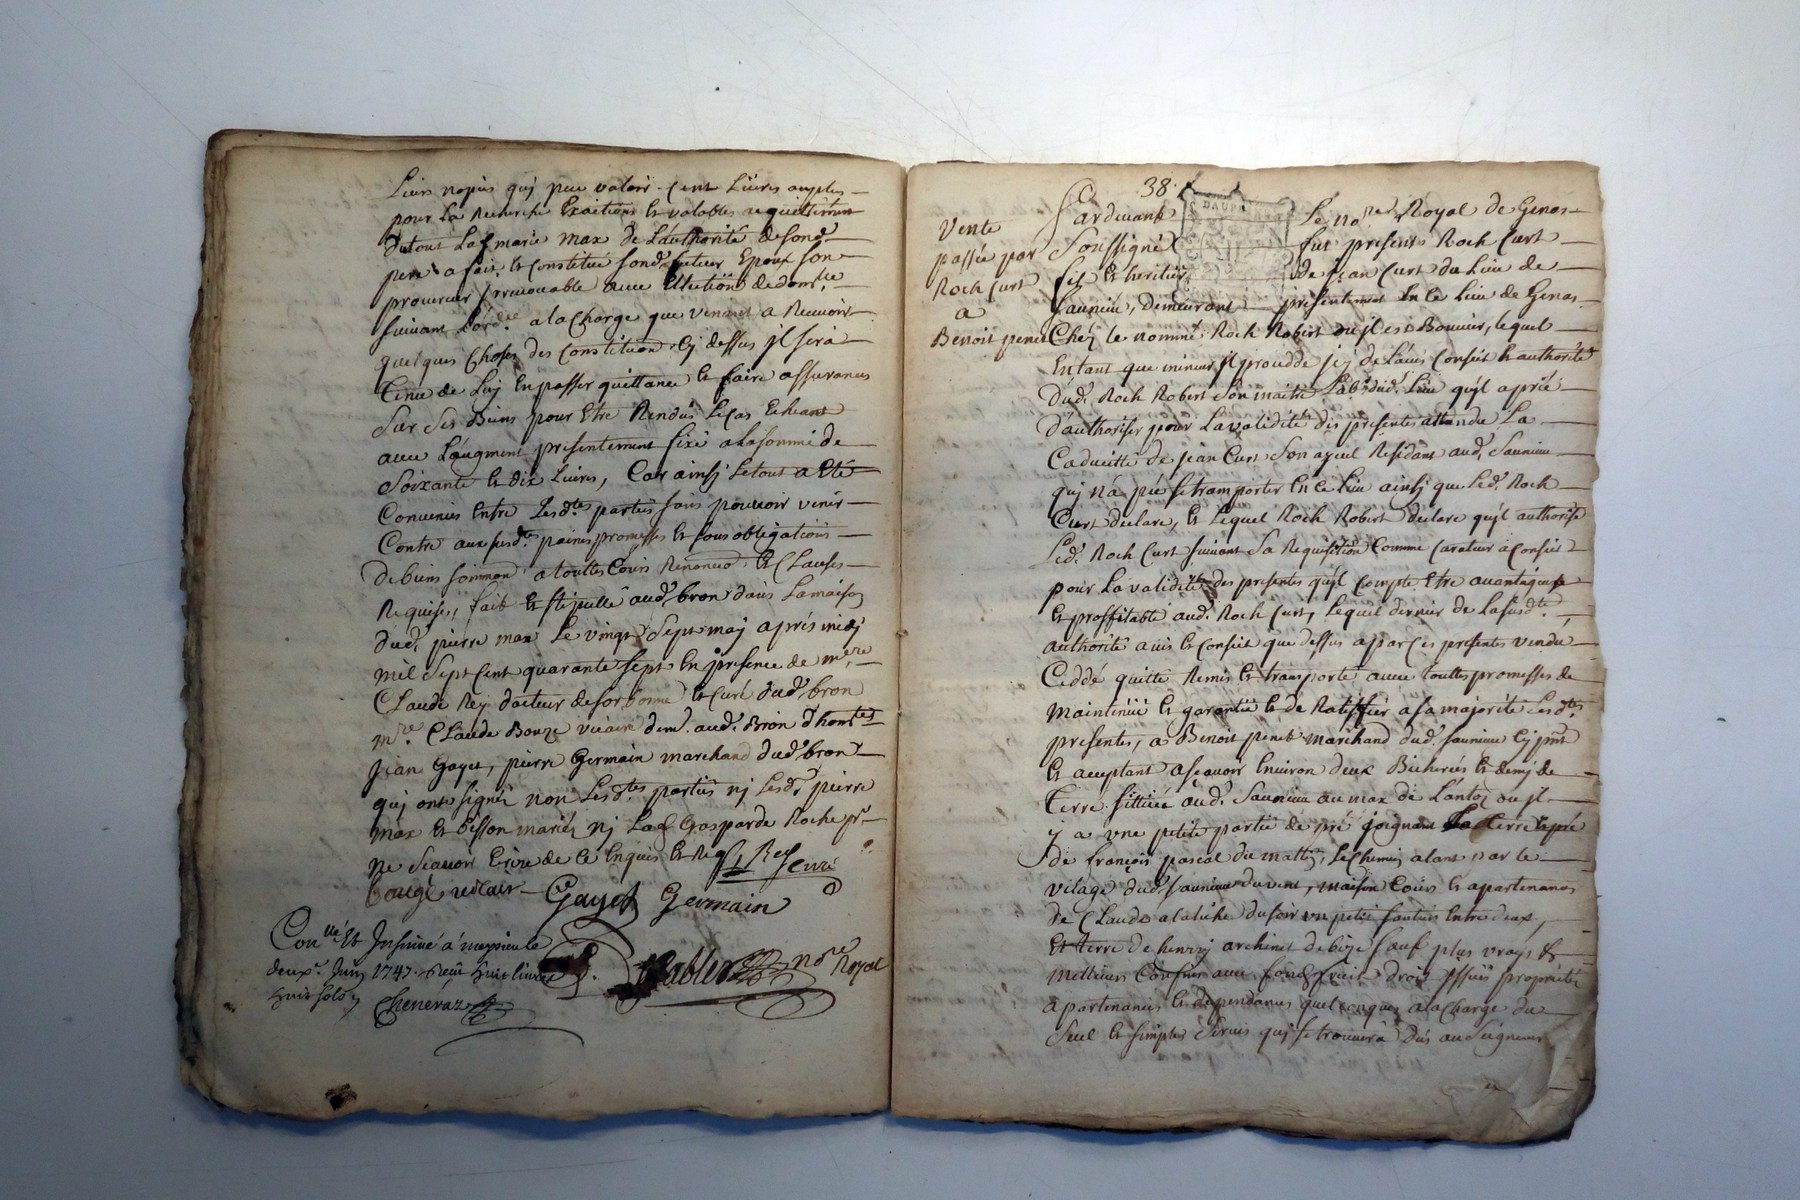 pour La Recherche Exactions Et valables
du tout Lad. marie max de L'authorité de
pere a fait, Et Constitué sond. futeur Epoux son
procureur Irrevocable avec Election de dom.
suivant L'ord. a la Charge que venant a Recevoir
quelques Choses des Constitution Cy dessus jl sera
tenu de Luy En passer quittance Et faire assurances
sur ses Biens pour Etre Rendüs Le Cas Echeant
avec L'augment presentement fixé a la somme de
Soixante Et dix Livres, Car ainsj Le tout a Eté
Convenus Entre Lesd.tes parties sans pouvoir venir
Contre aux susd.tes paines promesses Et sous obligations
de biens a touttes Cours Renoncé Et Clauses
Requises, fait Et stipullé aud. bron dans La maison
dud. pierre max Le vingt Sept maj aprés midj
mil Sept Cent quarante Sept En presence de m.re
Claude Rey docteur de sorbonne Et Curé dud. bron
m.re Claude Bouze vicaire dem. aud. Bron
Jean Gayet, pierre Germain marchand dud. bron
quj ont signés non Lesd.tes parties nj Lesd. pierre
max Et mariés nj Lad. Gasparde Roche p.r
ne Scavoir Ecrire de Ce Enquis Et Req. Rey Curé
Bouze vicaire Gayet Germain
Con.llé Et Insinué á meyzieu le
deux.e Juin 1747. Reçu huit livres
huit sols
no.re Royal
38.
DAUPH
Vente
passée par
Roch Curt
a
Benoit penet
Pardevant Le No.re Royal de Genas
Soussigné fut present Roch Curt
fils Et heritier de jean Curt du Lieu de
demeurant presentement En Ce Lieu de Genas
Chéz le nommé Roch Robert ou jl est Bouvier, lequel
Entant que mineur jl procedde jcy de L'avis Conseil Et authorité
Dud. Roch Robert Son maitre Lab.r dud. Lieu qu'jl a prié
d'authoriser pour La validité des presentes attendu La
Caducitté de jean Curt Son ayeul Residant aud.
quj n'a pu se transporter En Ce Lieu ainsj que Led. Roch
Curt declare, Et Lequel Roch Robert declare qu'jl authorise
Led. Roch Curt suivant Sa Requisition Comme Curateur a Conseil
pour La validité des presentes qu'jl Compte Etre avantageuse
Et proffitable aud. Roch Curt, Lequel dernier de La susd.te
authorité avis Et Conseil que dessus a par Ces presentes vendu
Ceddé quitté Remis Et transporté avec touttes promesses de
Maintenüe Et garantie Et de Ratiffier a sa majorité Lesd.tes
presentes, a Benoit penet marchand dud. Cy pnt
Et acceptant a sçavoir Environ deux Bicherées Et demj de
Terre sittüée aud. au max de ou jl
y a une petite partie de pré joignant La terre Et pré
de françois pascal du Le Chemin alant par le
vilage dud. du vent, maison Cour Et apartenances
de Claude du soir un petit sentier Entre deux,
Et terre de henry de bize sauf plus vrays Et
Meilleurs Confins avec fond fruits droit jssües proprietés
apartenances Et dependances quelconques a la Charge du
Seul Et simples Servis quj se trouvera dûs au Seigneur